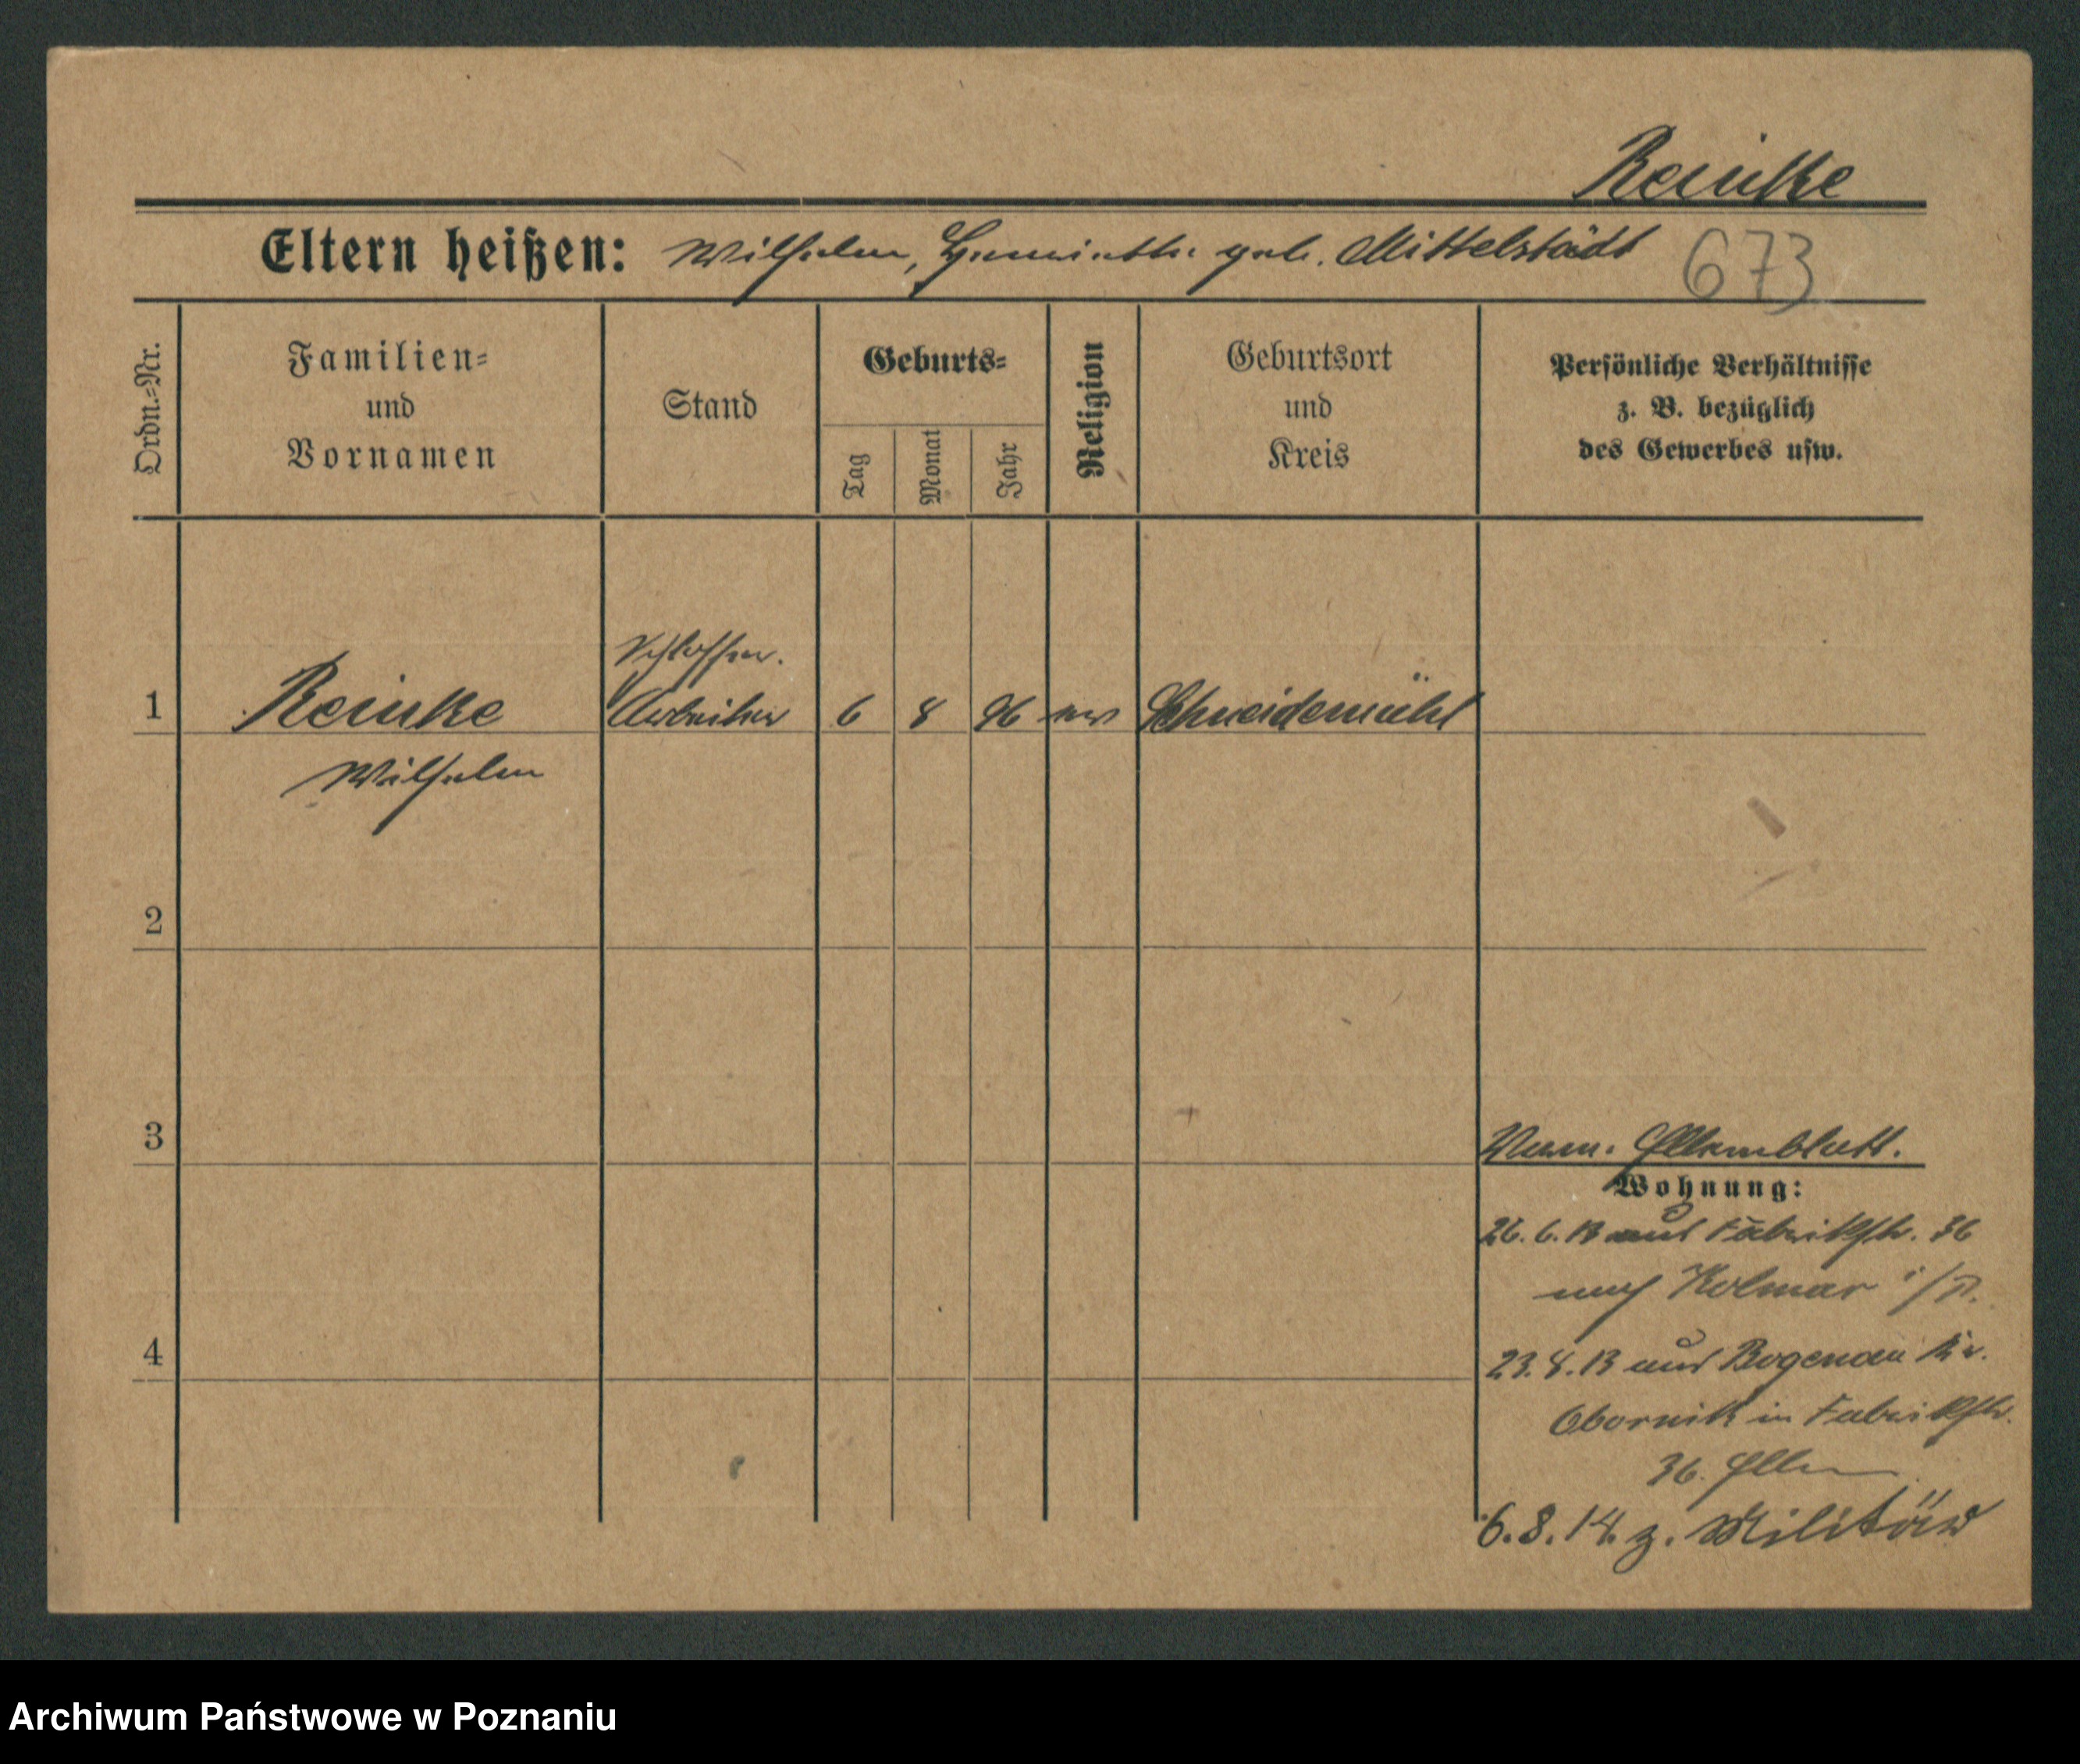 Reinke
Eltern heißen: Wilhelm, geb. Mittelstädt 673
Ordn.=Nr.
Familien=
und
Vornamen
Stand
Geburts=
Tag
Monat
Jahr
Religion
Geburtsort
und
Kreis
Persönliche Verhältnisse
z. B. bezüglich
des Gewerbes usw.
Schlosser.
1 Reinke Arbeiter 6 8 96 ev Schneidemühl
Wilhelm
2
3
Elternblatt.
Wohnung:
26. 6. 13 aus Fabrikstr. 36
nach Kolmar i/P.
4
23. 8. 13 aus Bogenau Kr.
Obornik in Fabrikstr.
36. Eltern
6. 8. 14. z. Militär
Archiwum Państwowe w Poznaniu